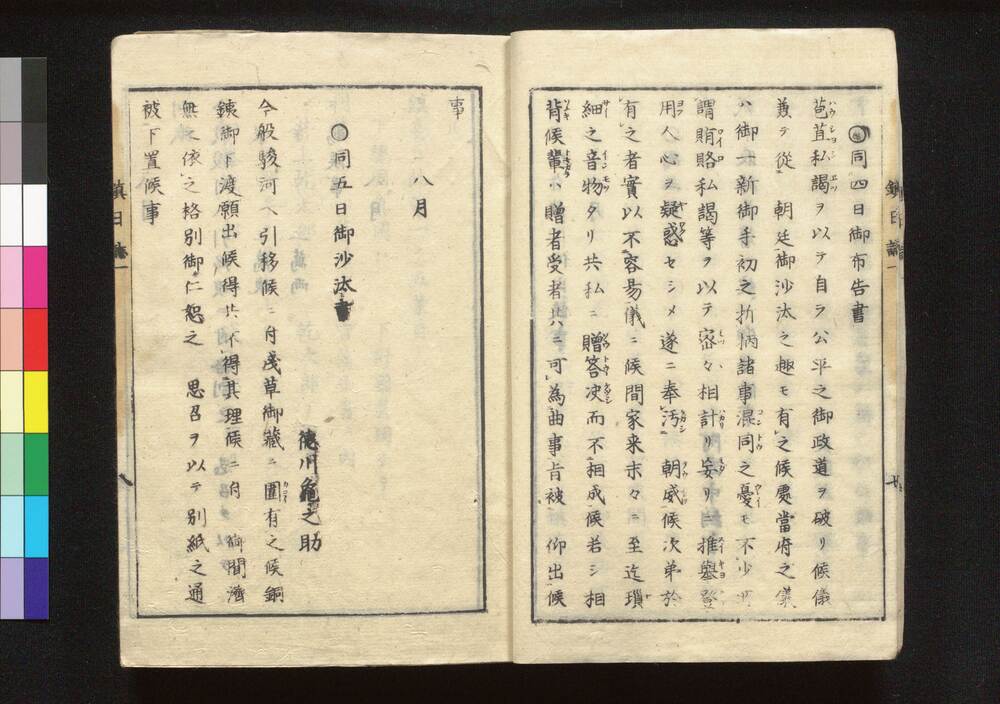 ◯同四日御布告書
苞苴私謁ヲ以テ自ラ公平之御政道ヲ破リ候儀
兼テ従　朝廷御沙汰之趣モ有之候處當府之儀
ハ御一新御手初之折柄諸事混同之憂モ不少所
謂賄賂私謁等ヲ以テ密々相計リ妄リニ推擧登
用人心ヲ疑惑セシメ遂ニ奉汚　朝威候次第於
有之者實以不容易儀ニ候間家来末々ニ至迄瑣
細之音物タリ共私ニ贈答决而不相成候若シ相
背候輩ハ贈者受者共ニ可為曲事旨被　仰出候
事
八月
◯同五日御沙汰書
徳川龜之助
今般駿河ヘ引移候ニ付淺草御藏ニ圍有之候銅
銕御下渡願出候得共不得其理候ニ付御聞濟
無之依之格別御仁恕之　思召ヲ以テ別紙之通
被下置候事
鎮日誌一